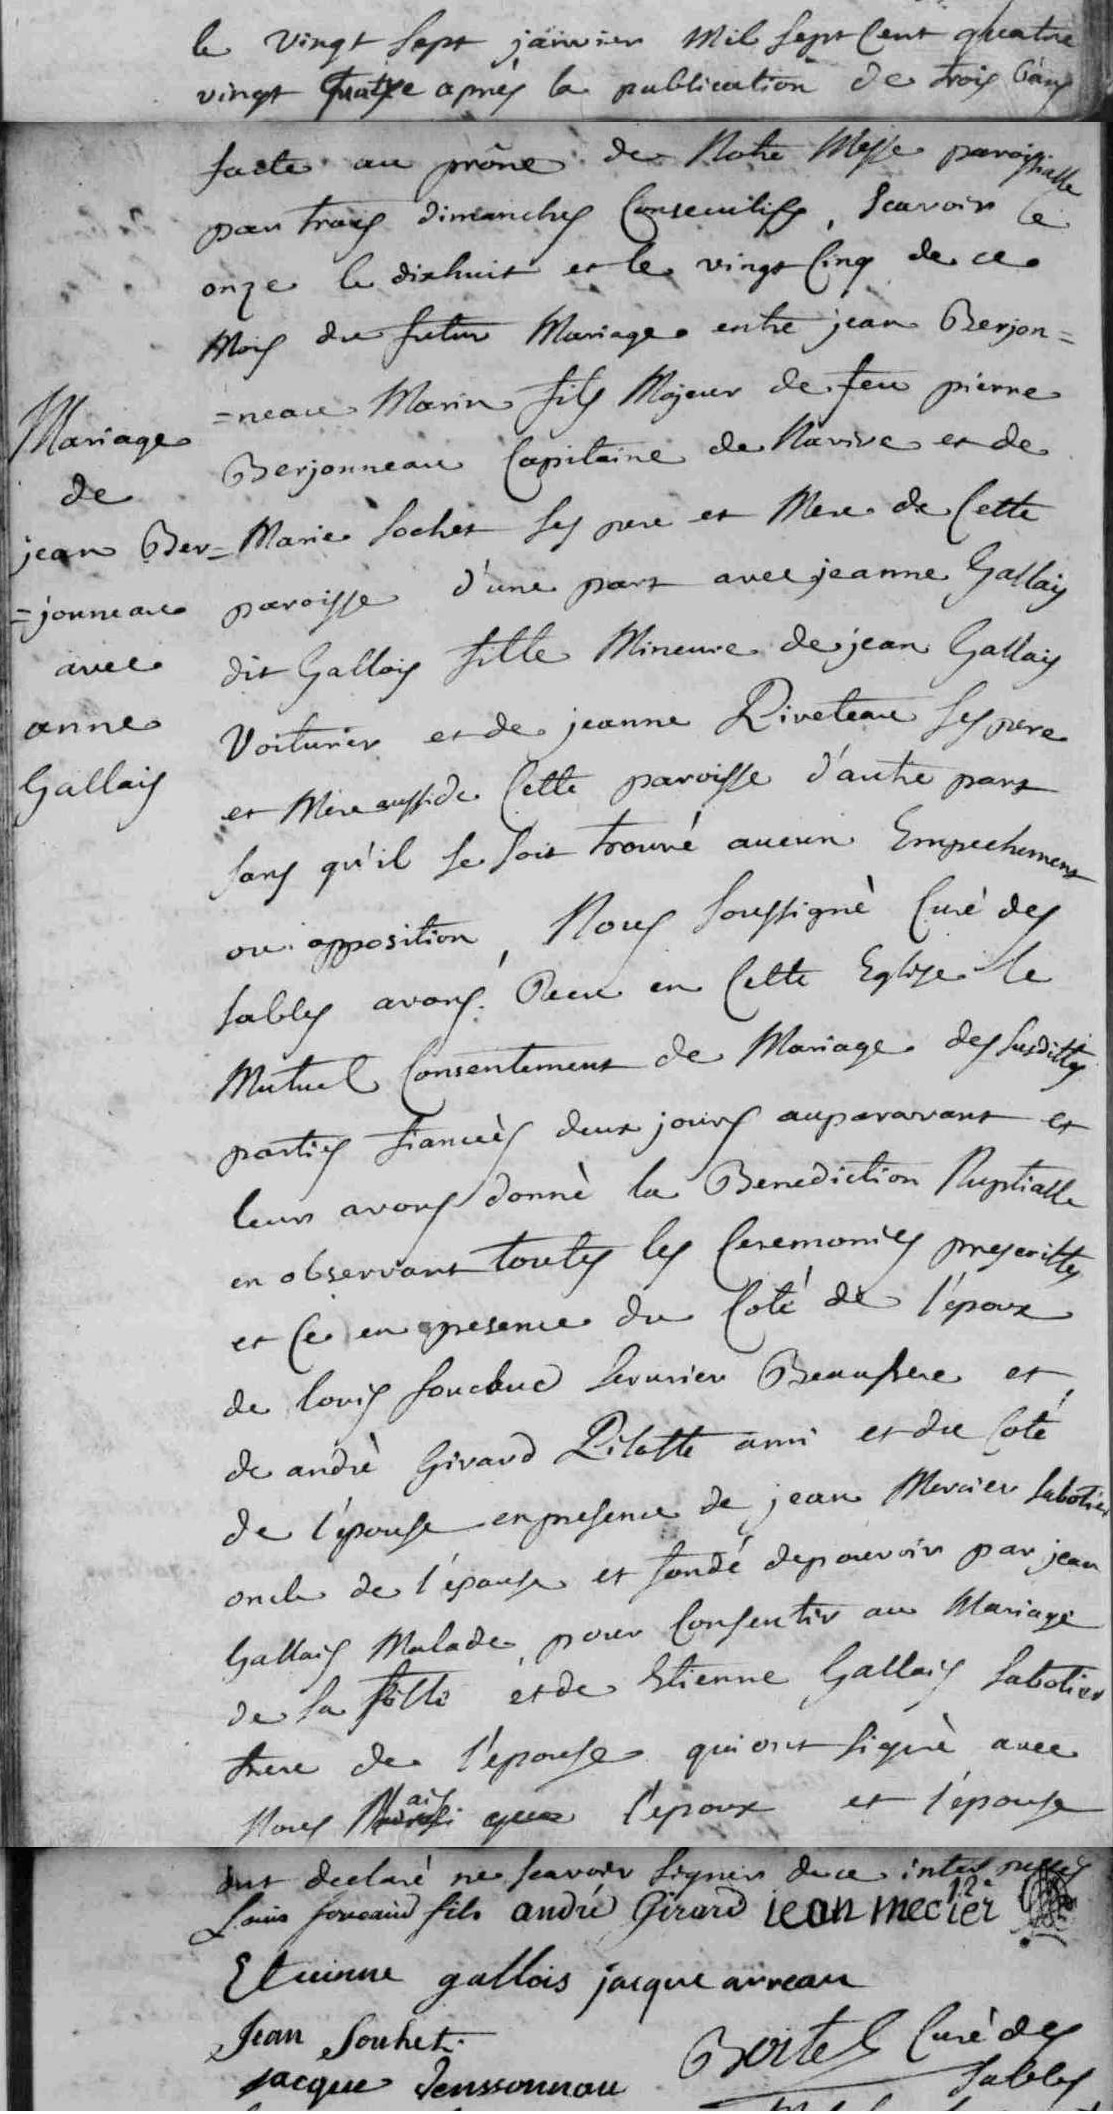 le vingt sept janvier mil sept cent quatre
vingt après la publication de trois bans
faete au prône de Notre Messe paroissialle
par trois dimanches Consecutifs, scavoir le
onze le dixhuit et le vingt Cinq de ce
Mois du futur Mariage entre jean Berjon=
=neau Marin fils Majeur de feu pierre
Berjonneau Capitaine de Navire et de
Marie sochet ses pere et Mere de Cette
paroisse d'une part avec jeanne Gallais
dit Gallois fille Mineure de jean Gallais
Voiturier et de jeanne Riveteau ses pere
et Mere aussi de Cette paroisse d'autre part
sans qu'il se soit trouvé aucun Empechement
ou opposition, Nous soussignè Curé des
sables avons Recu en Cette Eglise le
Mutuel Consentement de Mariage des susdittes
parties fiancèes deux jours auparavant et
leur avons donnè la Benediction Nuptialle
en observant toutes les Ceremonies prescrittes
et Ce en presence du Coté de l'époux
de louis serrurier Beaufrere et
de andrè Girard Pilotte ami et du Coté
de l'épouse en presence de jean Mercier sabotier
oncle de l'épouse et fondé de pouvoir par jean
Gallais Malade pour Consentir au Mariage
de sa fille et de Etienne Gallais sabotier
frere de l'epouse qui ont signè avec
Nous Mais l'epoux et l'épouse
ont declaré ne scavoir signer de ce interpellés
Louis foucaud fils andré Girard jean mecier 12e
Etuinne gallois jacque arreau
Jean Souhet
jacque Jenssonnau
Boitel Curè des
sables
Mariage
de
jean Ber=
=jonneau
avec
anne
Gallais